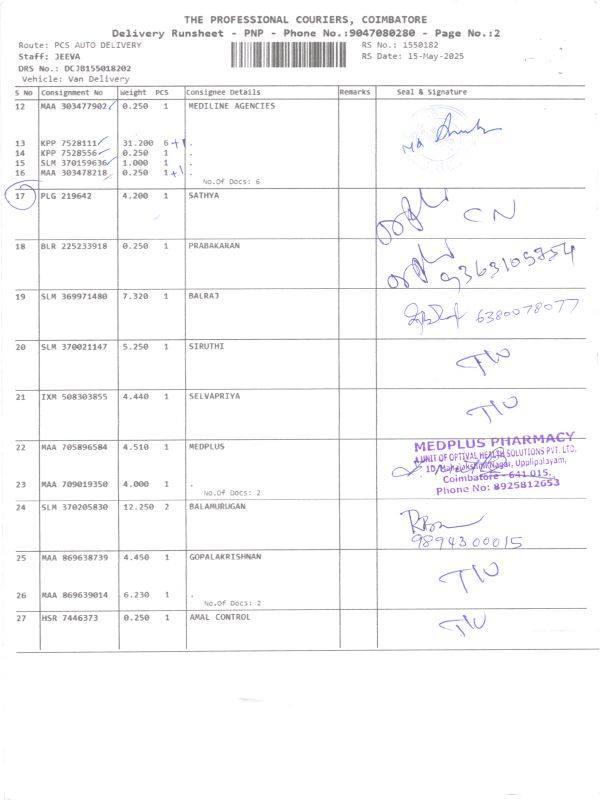 THE PROFESSIONAL COURIERS, COIMBATORE
Delivery Runsheet - PNP - Phone No.:9047080280 - Page No.:2
Route: PCS AUTO DELIVERY RS No.: 1550182
Staff: JEEVA RS Date: 15-May-2025
DRS No.: DCJB155018202
Vehicle: Van Delivery
S No Consignment No Weight PCS Consignee Details Remarks Seal & Signature
12 MAA 303477902 0.250 1 MEDILINE AGENCIES
13 KPP 7528111 31.200 6 +1 .
14 KPP 7528556 0.250 1 .
15 SLM 370159636 1.000 1 .
16 MAA 303478218 0.250 1 +1 .
No.Of Docs: 6
17 PLG 219642 4.200 1 SATHYA CN
18 BLR 225233918 0.250 1 PRABAKARAN 9363105754
19 SLM 369971480 7.320 1 BALRAJ 6380078077
20 SLM 370021147 5.250 1 SIRUTHI
21 IXM 508303855 4.440 1 SELVAPRIYA
22 MAA 705896584 4.510 1 MEDPLUS MEDPLUS PHARMACY
A UNIT OF OPTIVAL HEALTH SOLUTIONS PVT. LTD.
Nagar, Upplipalayam,
Coimbatore - 641 015.
23 MAA 709019350 4.000 1 . Phone No: 8925812653
No.Of Docs: 2
24 SLM 370205830 12.250 2 BALAMURUGAN
9894300015
25 MAA 869638739 4.450 1 GOPALAKRISHNAN
26 MAA 869639014 6.230 1 .
No.Of Docs: 2
27 HSR 7446373 0.250 1 AMAL CONTROL